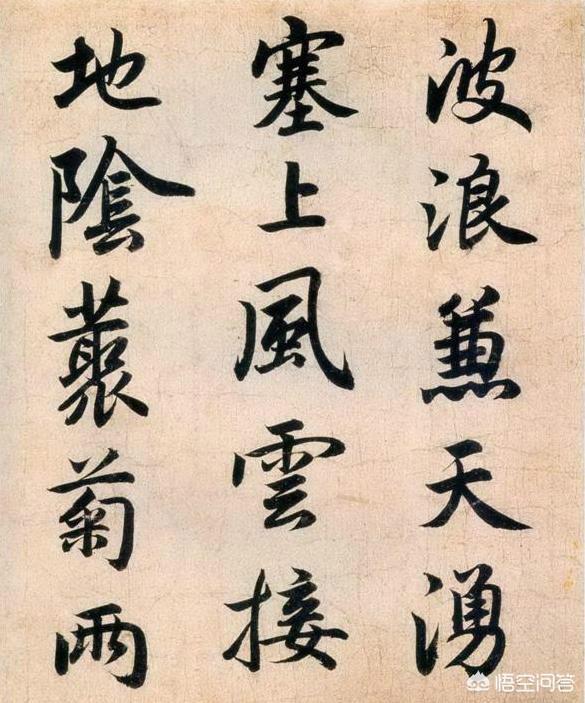 波浪兼天湧
塞上風雲接
地陰藂菊兩
悟空问答